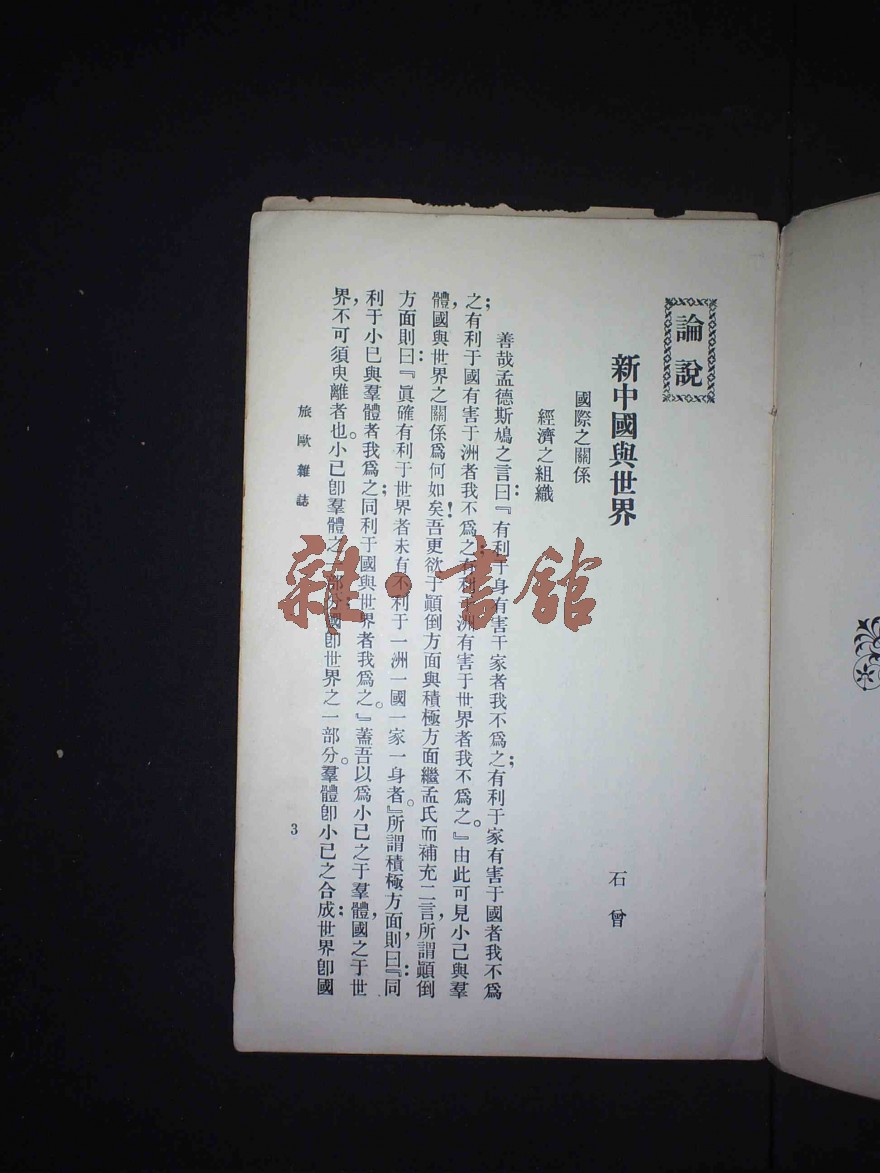 論說
新中國與世界
石曾
國際之關係
經濟之組織
善哉孟德斯鳩之言曰：『有利于身有害于家者我不爲之；有利于家有害于國者我不爲
之；有利于國有害于洲者我不爲之；有利于洲有害于世界者我不爲之。』由此可見小己與羣
體，國與世界之關係爲何如矣！吾更欲于顚倒方面與積極方面繼孟氏而補充二言，所謂顚倒
方面則曰：『眞確有利于世界者未有不利于一洲一國一家一身者』。所謂積極方面，則曰：『同
利于小己與羣體者我爲之；同利于國與世界者我爲之。』蓋吾以爲小己之于羣體，國之于世
界，不可須臾離者也。小己卽羣體之一部分，國卽世界之一部分。羣體卽小己之合成：世界卽國
旅歐雜誌
3
雜·書館